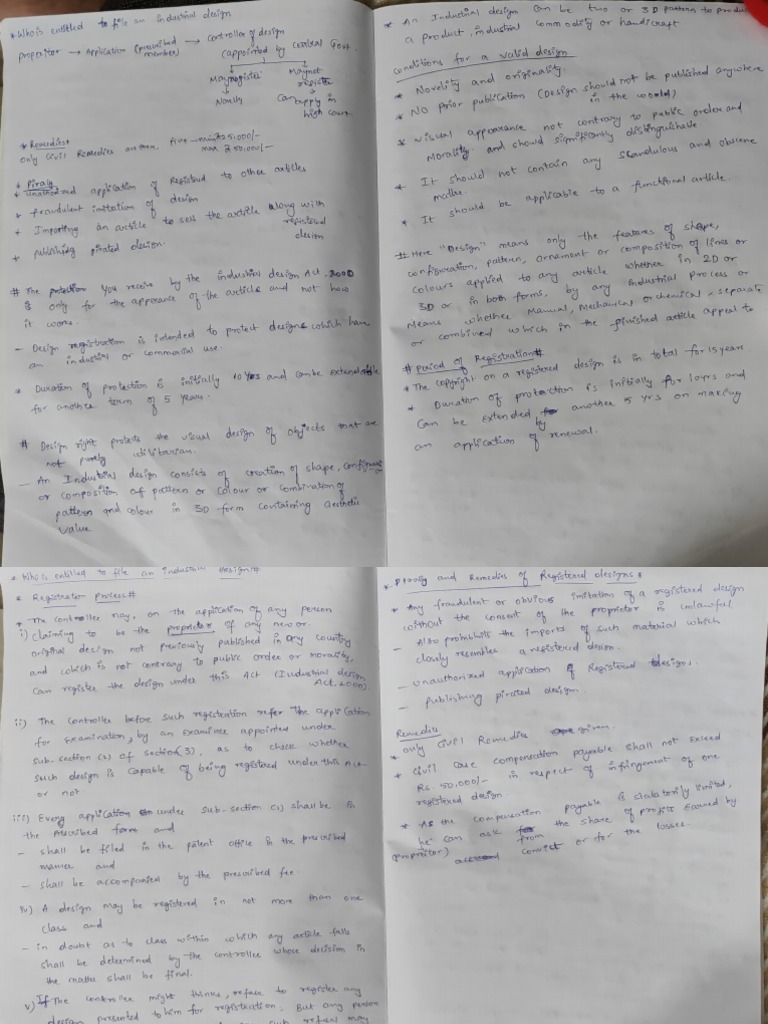 * Who is entitled to file an industrial design
proprietor → Application (prescribed → Controller of design
member) (appointed by central Govt.
May register May not
register
↓ ↓
Normally Can apply in
high court
* Remedies
only Civil Remedies fine - min ₹25,000/-
max ₹50,000/-
* Piracy
+ unauthorized application of Registred to other articles
+ fraudulent imitation of design
+ Importing an article to sell the article along with
registered
design
+ publishing pirated design.
# The protection you receive by the industrial design Act, 2000
is only for the apperance of the article and not how
it works.
- Design registration is intended to protect designs which have
an industrial or commercial use.
* Duration of protection is initially 10 yrs and can be extendable
for another term of 5 years.
# Design right protects the visual design of objects that are
not purely utilitarian.
- An Industrial design consists of creation of shape, configuration
or composition of pattern or colour or combination of
pattern and colour in 3D form containing aesthetic
value
* An Industrial design can be two or 3D pattern to produce
a product, industrial commodity or handicraft
Conditions for a valid design
* Novelity and originality.
* No prior publication (Design should not be published anywhere
in the world)
* visual appearance not contrary to public order and
Morality and should significantly distinguishable
* It should not contain any scandulous and obscene
matter.
* It should be applicable to a functional article.
# Here "Design" means only the features of shape,
configuration, pattern, ornament or composition of lines or
colours applied to any article whether in 2D or
3D or in both forms, by any industrial process or
Means whether Manual, Mechanical or chemical, separate
or combined which in the finished article appeal to
# Period of Registration #
* The copyright on a registered design is in total for 15 years
* Duration of protection is initially for 10yrs and
Can be extended by another 5 yrs on making
an application of renewal.
* Who is entitled to file an industrial design #
* Registration process #
* The controller may, on the application of any person
i) claiming to be the proprietor of any new or
original design not previously published in any country
and which is not contrary to public order or morality,
can register the design under this Act (Industrial design
Act, 2000)
ii) The controller before such registration refer the application
for examination, by an examiner appointed under
sub-section (2) of section (3), as to check whether
such design is capable of being registered under this Act
or not
iii) Every application under sub-section (1) shall be in
the prescribed form and
- shall be filed in the patent office in the prescribed
manner and
- shall be accompanied by the prescribed fee.
iv) A design may be registered in not more than one
class and
- in doubt as to class within which any article falls
shall be determined by the controller whose decision in
the matter shall be final.
v) If The controller might thinks, refuse to register any
design presented to him for registration. But any person
such refusal may
* Piracy and Remedies of Registered designs:
* Any fraudulent or obvious imitation of a registered design
without the consent of the proprietor is unlawful
- Also prohibits the imports of such material which
closely resembles a registered design.
- unauthorized application of Registered designs.
- publishing pirated design.
Remedies
* only Civil Remedies given.
* Civil case compensation payable shall not exceed
Rs. 50,000/- in respect of infringement of one
registered design.
* As the compensation payable is statutorily limited,
he can ask for the share of profits earned by
(proprietor) from convict or for the losses.